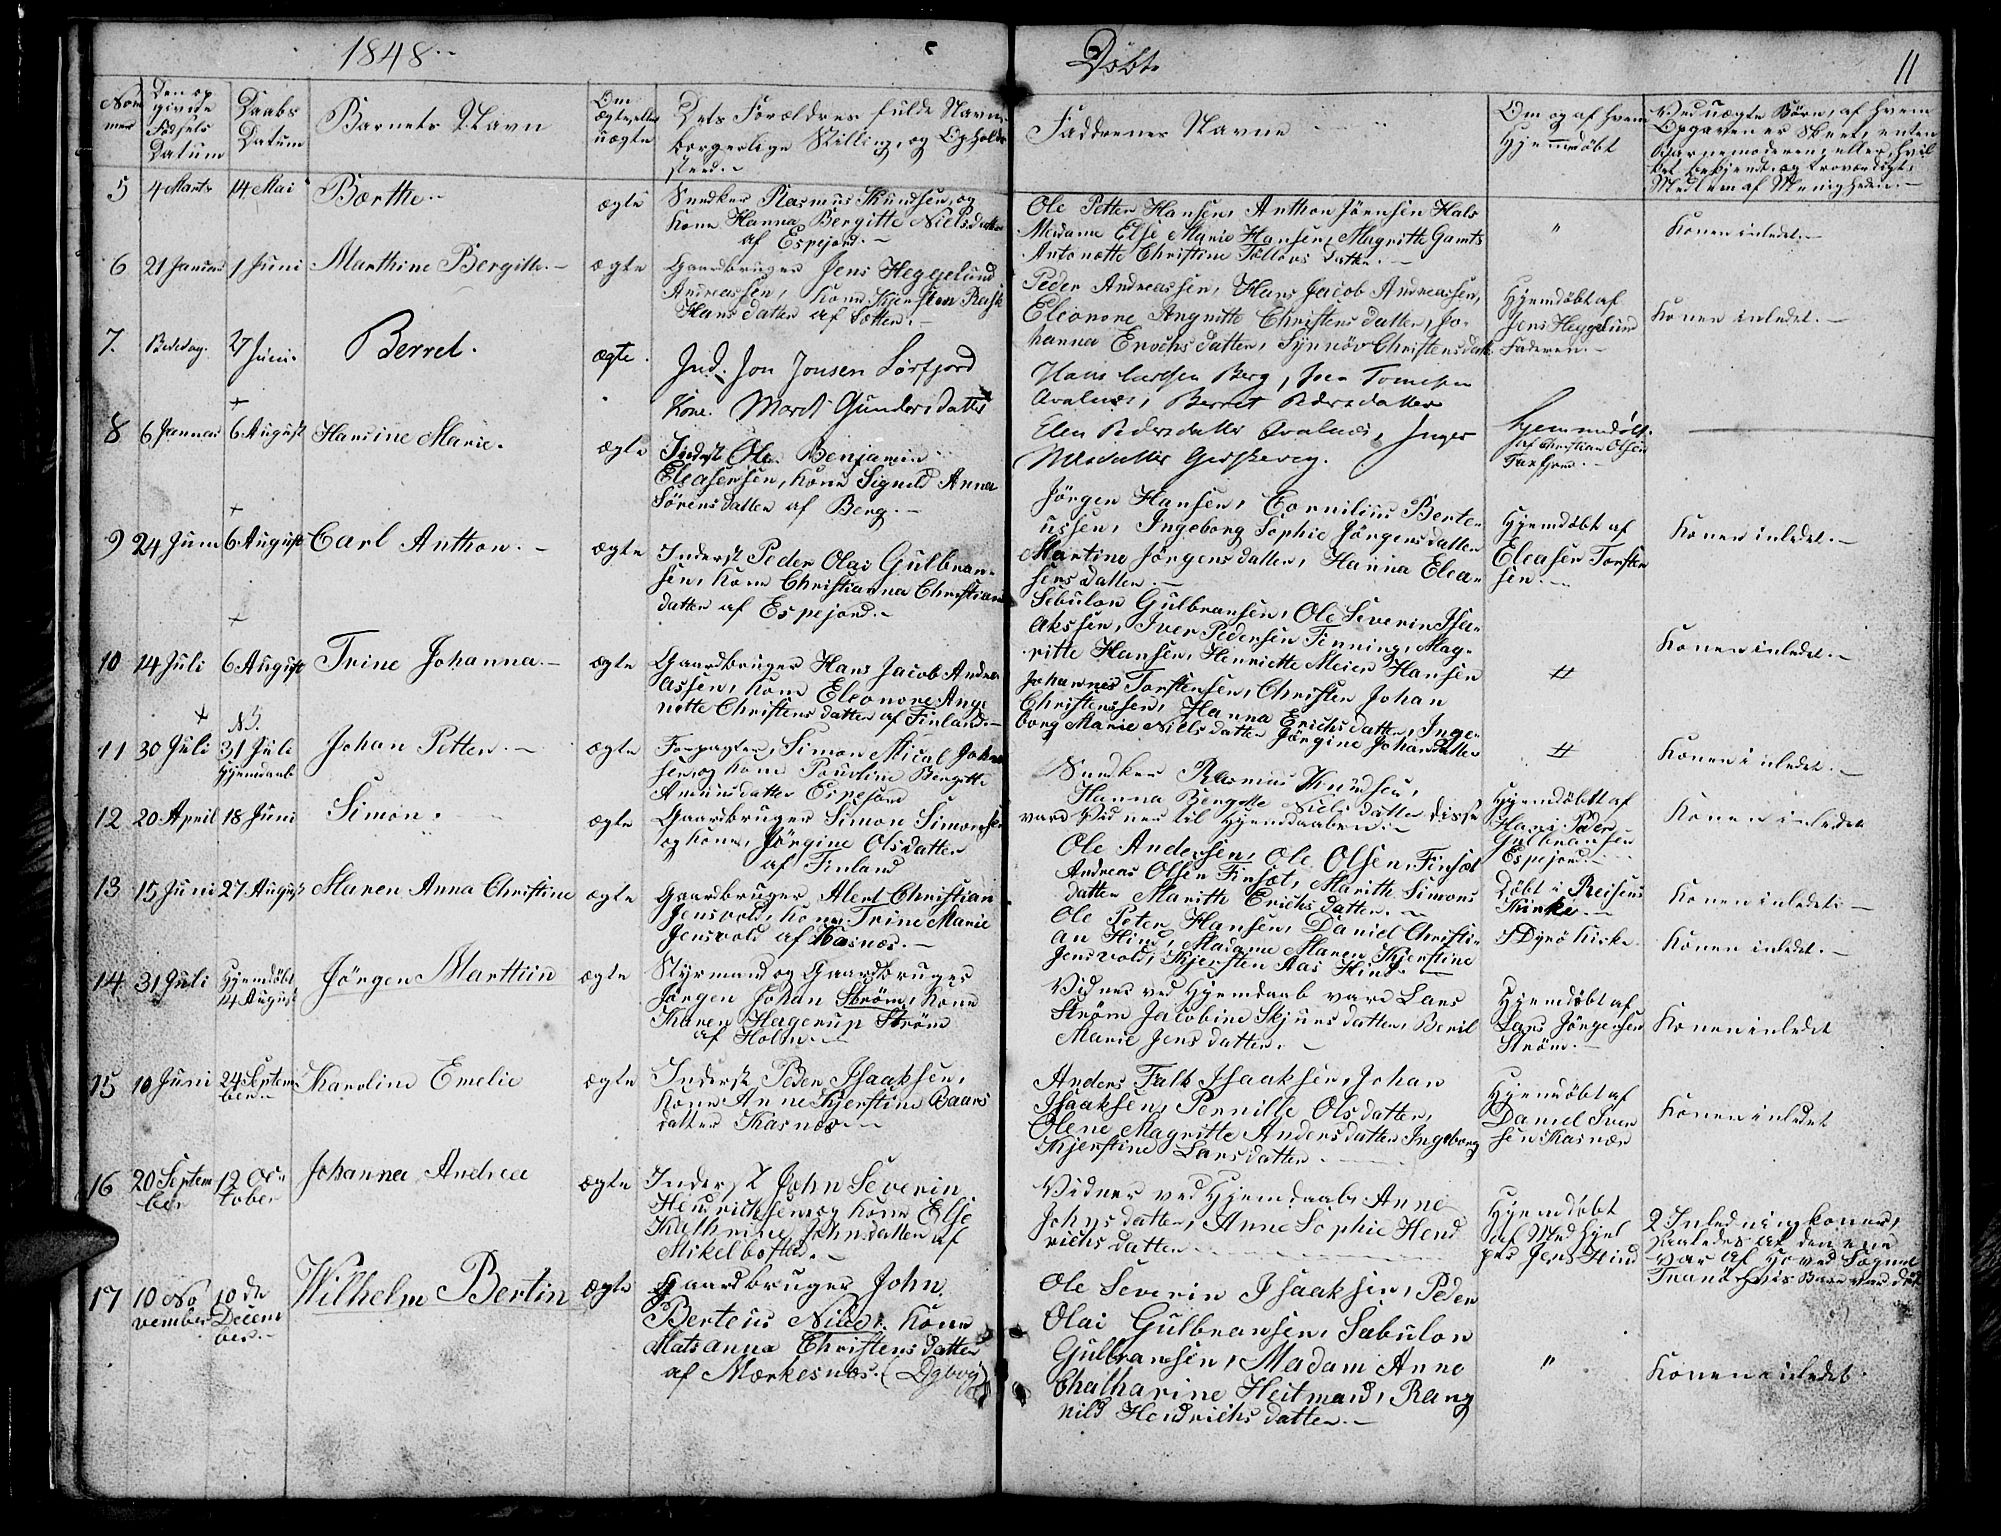 1848.
Döbte
11
Nom
mer
Den op
givne
Födsels
Datum
Daabs
Datum
Barnets Navn
Om
ægte eller
uægte
Dets Forældres fulde Navn,
borgerlige Stilling, og Opholds
sted.
Faddrenes Navne
Om og af hvem
Hjemmedöbt
Ved uægte Börn, af hvem
Opgaven er skeet, enten
Barnemoderen, eller hvil
ket bekjendt og troværdigt
Medlem af Menigheden.
5 4 Marts 14 Mai Bærthe
ægte
Snedker Rasmus Knudsen, og
Kone Hanna Bergitte Nielsdatter
af Espejord.
Ole Petter Hansen, Anthon Jörensen Hals
Madame Else Marie Hansen, Magritte Gamts
Antonette Christine Tollevsdatter.
"
Konen inledet.
6 21 Januar 1 Juni Marthine Bergitte.
ægte
Gaardbruger Jens Heggelund
Andreassen, Kone Kjersten Rask
Hansdatter af Sætter.
Peder Andreassen, Hans Jacob Andreassen,
Eleonore Angnitte Christensdatter, Jo-
hanna Enochsdatter, Synnöv Christensdatt
Hjemdöbt af
Jens Heggelund
Faderen.
Konen inledet.
7. Bededag. 27 Juni. Berret.
ægte.
Ind. Jon Jonsen Lörfjord
Kone. Maret Gundersdatter
Hans Larsen Berg, Jon Tomesen
Avalnes, Berret Pedersdatter
Elen Pedersdatter Avalnes, Inger
Nilsdatter Gisskevig.
Hjemmedöbt.
af Christian Olsen
8 6 Januar 6 August Hansine Marie.
ægte
Inderst Ole Benjamin
Eleasersen, Kone Signild Anna
Sörensdatter af Berg.
Jörgen Hansen, Cornilius Berte-
ussen, Ingeborg Sophie Jörgensdatter
Martine Jörgensdatter, Hanna Elea-
sersdatter.
Hjemdöbt af
Eleaser Torsten
sen.
Konen inledet.
9 24 Juni 6 August Carl Anthon.
ægte
Inderst Peder Olai Gulbran-
sen, Kone Christianna Christians
datter af Espejord.
Sebulon Gulbransen, Ole Severin Isa-
aksen, Iver Pedersen Finning, Mag-
ritte Hansen, Henriette Meier Hansen
Konen inledet.
10 14 Juli 6 August Trine Johanna.
ægte
Gaardbruger Hans Jacob Andre
assen, Kone Eleonore Ang
nette Christensdatter af Finland.
Johannes Torstensen, Christen Johan
Christenssen, Hanna Erichsdatter, Inge-
borg Marie Nielsdatter Jörgine Johansdatter
Konen inledet.
NB.
11 30 Juli 31 Juli
Hjemdaab
Johan Petter.
ægte
Forpagter Simon Mical Johan
sen, og Kone Pouline Bergitte
Amunsdatter Espejord
Snedker Rasmus Knudsen,
Hanna Bergitte Nielsdatter disse
vare Vidner til Hjemdaaben.
Hjemdöbtt af
Hans Peder
Gulbransen
Espejord.
Konen inledet
12 20 April 18 Juni Simon.
ægte
Gaardbruger Simon Simonsen
og Kone, Jörgine Olsdatter
af Finland
Ole Andersen, Ole Olsen, Finsæt
Andreas Olsen Finsæt, Maritte Simons
datter Maritte Erichsdatter.
Döbt i Reisens
Kirke.
Konen inledet.
13 15 Juni 27 August Maren Anna Christine
ægte
Gaardbruger Alert Christian
Jensvold, Kone Trine Marie
Jensvold af Kasnes.
Ole Peter Hansen, Daniel Christi-
an Hind, Madame Maren Kjerstine
Jensvold, Kjersten Aas Hind.
I Dyrö Kirke.
Konen inledet.
14 31 Juli
Hjemdöbt
14 August
Jörgen Marttiin
ægte
Styrmand og Gaardbruger
Jörgen Johan Ström, Kone
Karen Hagerup Ström
af Holm.
Vidner ved Hjemdaab vare Lars
Ström Jacobine Skjursdatter, Beril
Marie Jensdatter.
Hjemdöbt af
Lars Jörgensen
Ström.
Konen inledet
15 10 Juni 24 Septem
ber.
Karoline Emelie
ægte
Inderst Peder Isaaksen,
Kone Anne Kjerstine Baars
datter Kasnæs.
Anders Falk Isaaksen, Johan
Isaaksen, Pernille Olsdatter,
Olene Magritte Andersdatter Ingeborg
Kjerstine Larsdatter.
Hjemdöbt af
Daniel Iver
sen Kasnæs
Konen inledet
16 20 Septem
ber
12 Oc-
tober
Johanna Andrea
ægte
Inderst John Severin
Henrichsen og Kone Else
Kathrine Johnsdatter af
Mikelboften.
Vidner ved Hjemdaab Anne
Johnsdatter, Anne Sophie Hend
richsdatter
Hjemdöbt
af Medhjel
per Jens Hind
2 Inledningkoner,
saaledes at den ene
var af
Tranö hvis Barn var död
17 10 No
vember
10de
Decem
ber.
Wilhelm Bertin
ægte
Gaardbruger John
Berteus Nils, Kone
Matsanna Christensdatter
af Mærkesnæs. (Dybvig)
Ole Severin Isaaksen, Peder
Olai Gulbransen, Sabulon
Gulbransen, Madam Anne
Chatharine Heitmand, Rang
nild Hendrichsdatter.
"
Konen inledet.